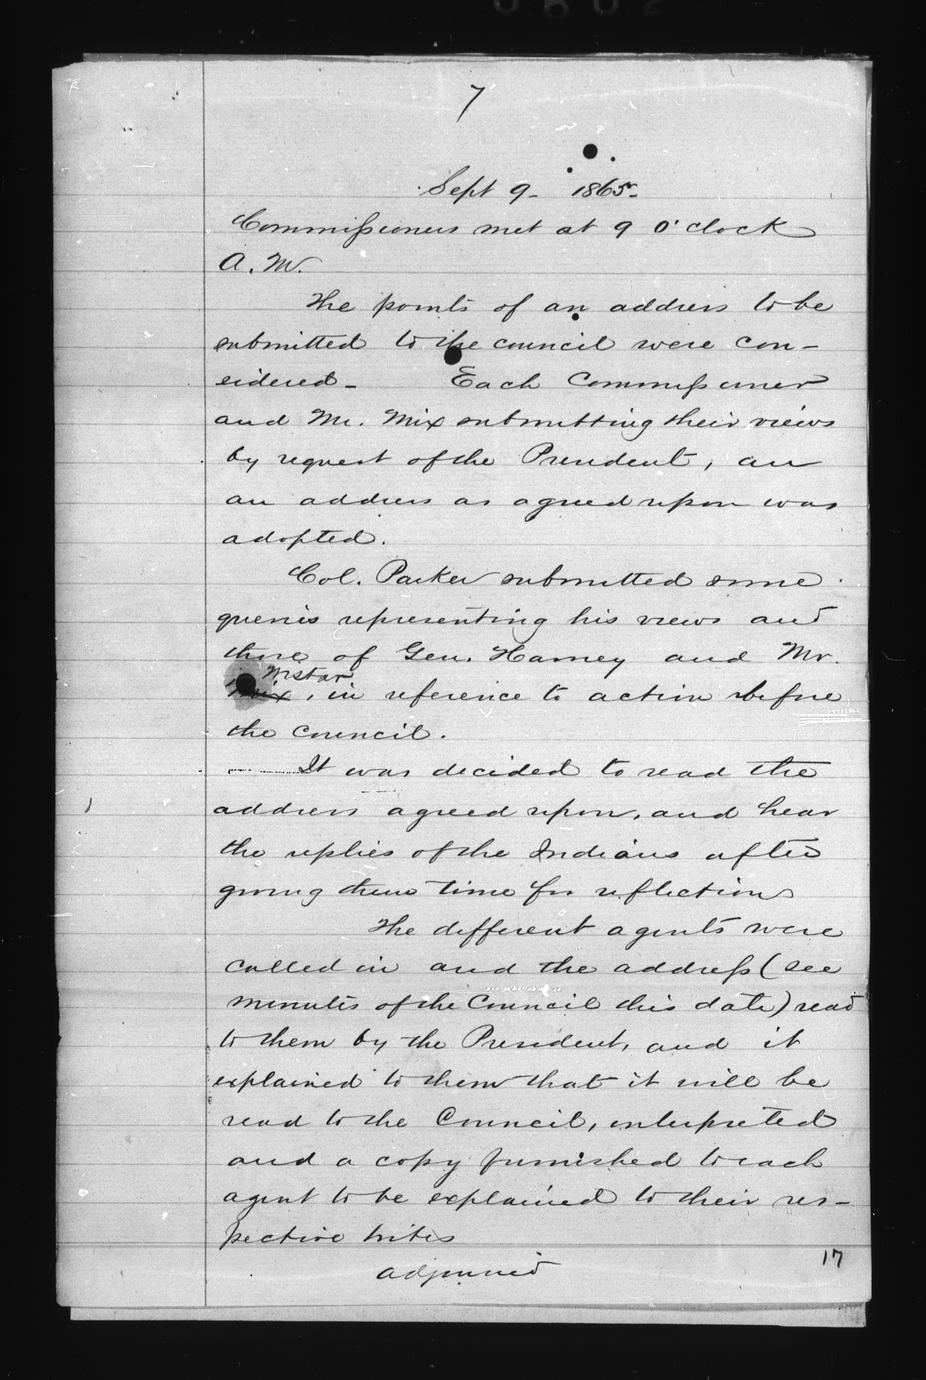 7
Sept 9 - 1865 -
Commissioners met at 9 O'clock
A. M.
The points of an address to be
submitted to the council were con-
sidered - Each Commissioner
and Mr. Mix submitting their views
by request of the President, an
an address as agreed upon was
adopted.
Col. Parker submitted some
queries representing his views and
those of Gen. Harney and Mr.
Wistar
Mix, in reference to action before
the council.
It was decided to read the
address agreed upon, and hear
the replies of the Indians after
giving them time for reflection
The different agents were
called in and the address (see
minutes of the Council this date) read
to them by the President, and it
explained to them that it will be
read to the Council, interpreted
and a copy furnished to each
agent to be explained to their res-
pective tribes
adjourned
17